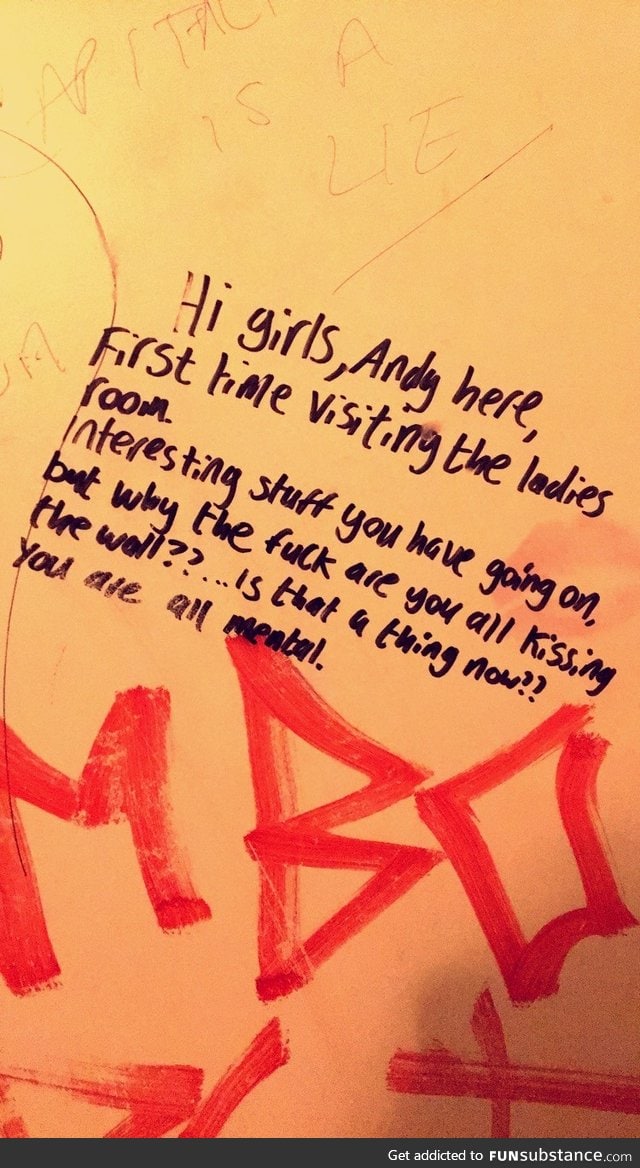 IS A
LIE
Hi girls, Andy here,
First time visiting the ladies
room.
Interesting stuff you have going on,
but why the fuck are you all kissing
the wall??...Is that a thing now??
You are all mental.
MBO
Get addicted to FUNsubstance.com